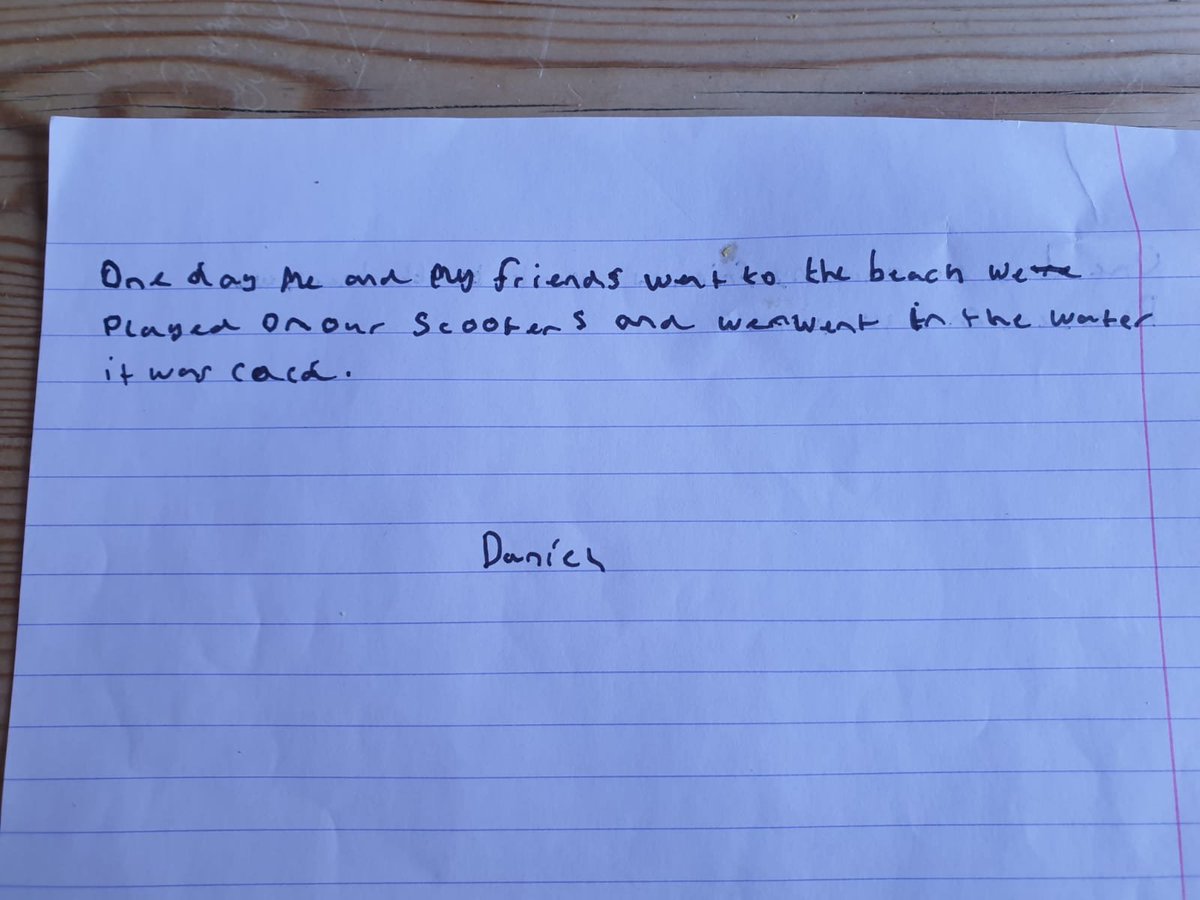 One day Me and My friends went to the beach we
Played on our Scooters and wen went in the water
it was cacd.
Daniel